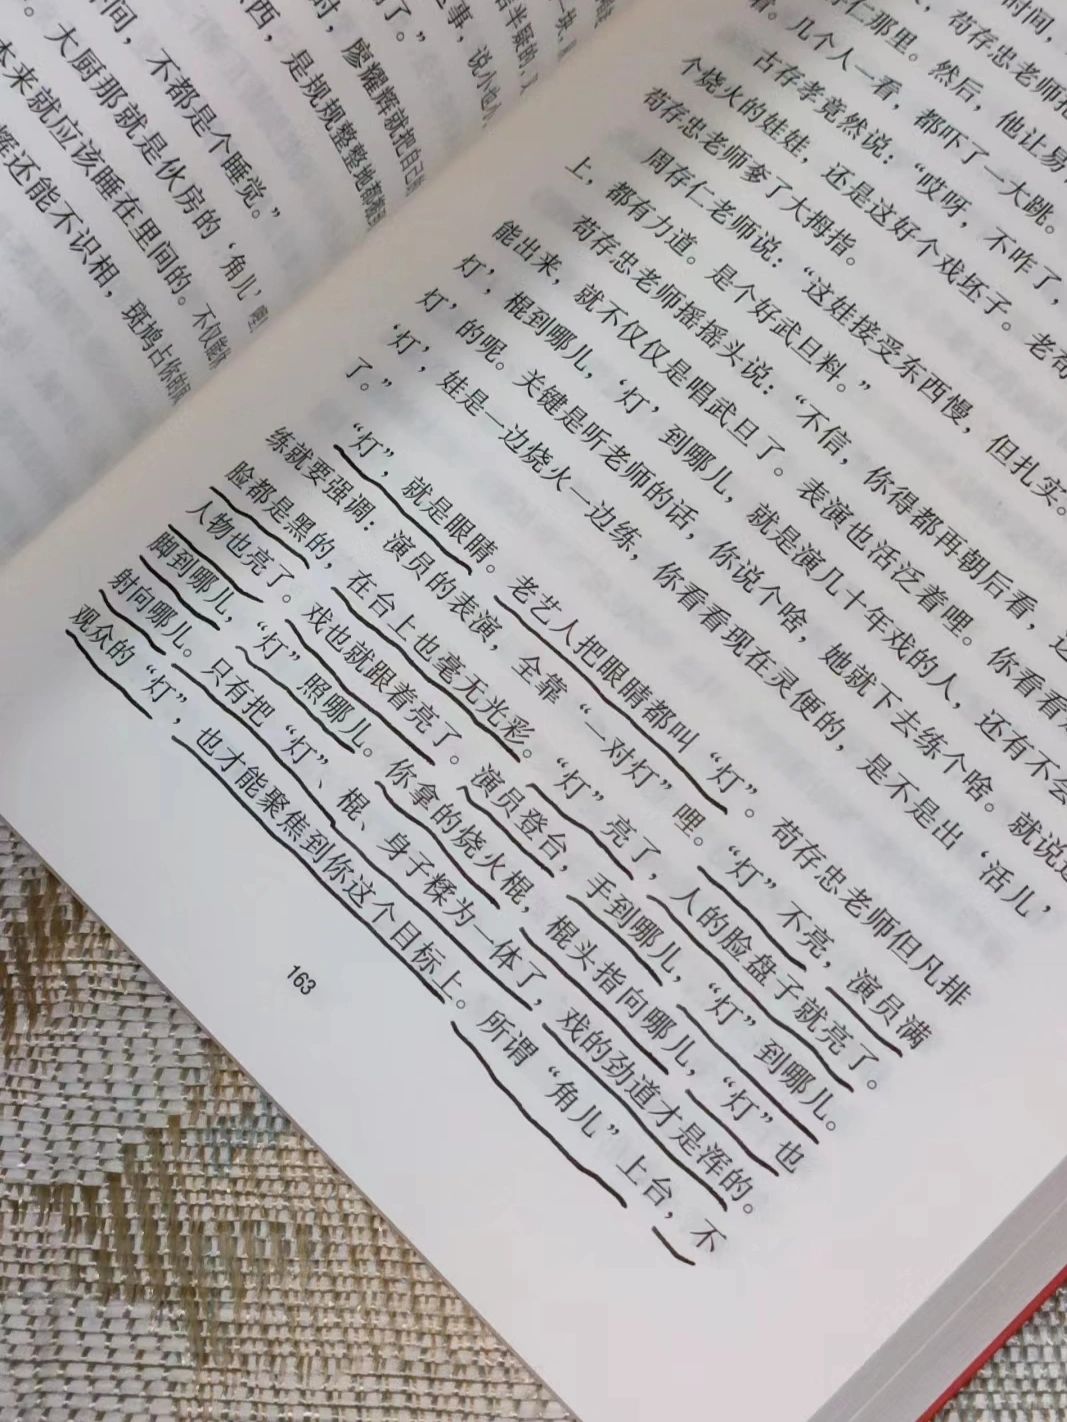 事，说小
了。”
时，廖耀辉就把自己
西，是规规整整地都
间，不都是个睡觉。”
。大厨那就是伙房的‘角儿’
本来就应该睡在里间的。不仅能
辉还能不识相，斑鸠占你的
时间，
，苟存忠老师把
仁那里。然后，他让易
看。几个人一看，都吓了一大跳。
古存孝竟然说：“哎呀，不咋了，
个烧火的娃娃，还是这好个戏坯子。老苟
苟存忠老师奓了大拇指。
周存仁老师说：“这娃接受东西慢，但扎实。
上，都有力道。是个好武旦料。”
苟存忠老师摇摇头说：“不信，你得都再朝后看，这
能出来，就不仅仅是唱武旦了。表演也活泛着哩。你看看
灯’，棍到哪儿，‘灯’到哪儿，就是演几十年戏的人，还有不会
灯’的呢。关键是听老师的话，你说个啥，她就下去练个啥。就说这
‘灯’，娃是一边烧火一边练，你看看现在灵便的，是不是出‘活儿’
了。”
“灯”，就是眼睛。老艺人把眼睛都叫“灯”。苟存忠老师但凡排
练就要强调：演员的表演，全靠“一对灯”哩。“灯”不亮，演员满
脸都是黑的，在台上也毫无光彩。“灯”亮了，人的脸盘子就亮了。
人物也亮了。戏也就跟着亮了。演员登台，手到哪儿，“灯”到哪儿。
脚到哪儿，“灯”照哪儿。你拿的烧火棍，棍头指向哪儿，“灯”也
射向哪儿。只有把“灯”、棍、身子糅为一体了，戏的劲道才是浑的。
观众的“灯”，也才能聚焦到你这个目标上。所谓“角儿”上台，不
163